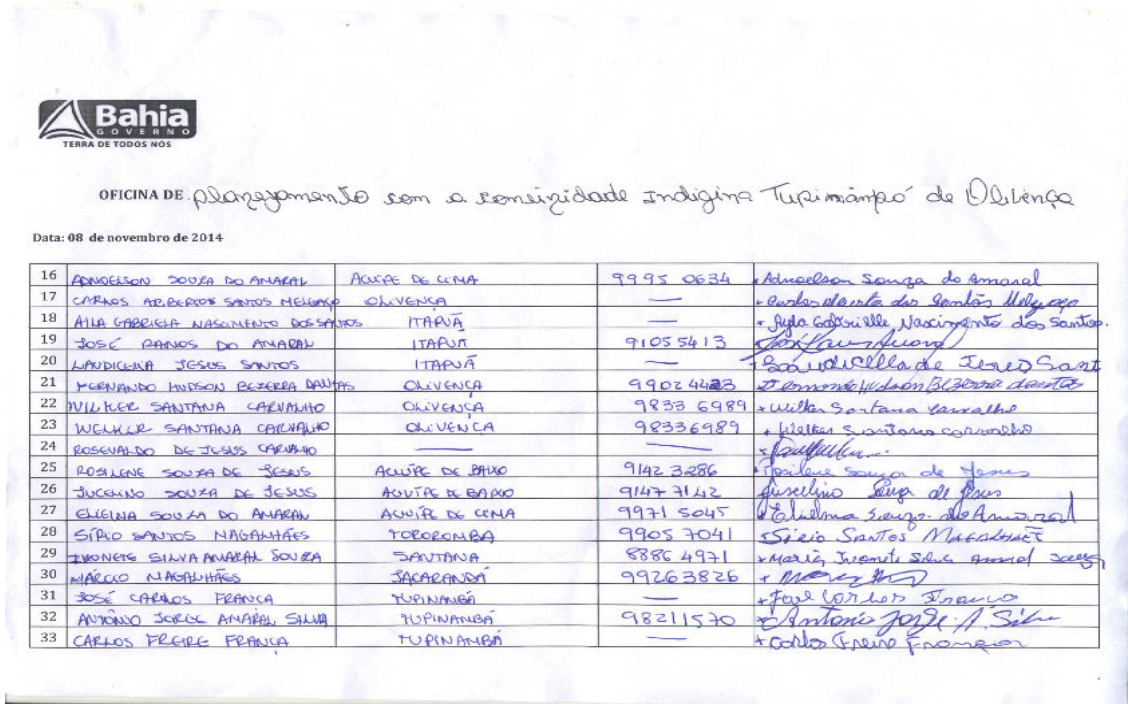 Bahia
GOVERNO
TERRA DE TODOS NÓS
OFICINA DE: planejamento com a comunidade Indigina Tupinâmpá de Olivença
Data: 08 de novembro de 2014
16 ADNOELSON SOUZA DO AMARAL ACUÍPE DE CIMA 9995 0634 Adnoelson Souza do Amaral
17 CARLOS ALBERTOS SANTOS MELGAÇO OLIVENÇA — Carlos dos Santos Melgaço
18 AILA GABRIELA NASCIMENTO DOS SANTOS ITAPUÃ — Ayla Gabrielle Nascimento dos Santos.
19 JOSÉ RAMOS DO AMARAL ITAPUÃ 91055413
20 LAUDICEIA JESUS SANTOS ITAPUÃ — de Jesus Sant
21 FERNANDO HUDSON BEZERRA DANTAS OLIVENÇA 99024423 Fernando Hudson Bezerra dantas
22 WILKER SANTANA CARVALHO OLIVENÇA 9833 6989 Wilker Santana carvalho
23 WELKER SANTANA CARVALHO OLIVENÇA 98336989 Welker Santana carvalho
24 ROSEVALDO DE JESUS CARVALHO — —
25 ROSILENE SOUZA DE JESUS ACUÍPE DE BAIXO 9142 3286 Rosilene Souza de Jesus
26 JUCELINO SOUZA DE JESUS ACUÍPE DE BAIXO 9147 7142 Juscelino Souza de Jesus
27 ELIELNA SOUZA DO AMARAL ACUÍPE DE CIMA 9971 5045 Elielma Souza do Amaral
28 SÍRIO SANTOS MAGALHÃES TOROROMBA 9905 7041 Sirio Santos MAGALHAES
29 IVONETE SILVA AMARAL SOUZA SANTANA 8886 4971 Maria Ivonete Silva Amaral Souza
30 MÁRCIO MAGALHÃES JACARANDÁ 99263826
31 JOSÉ CARLOS FRANÇA TUPINAMBÁ — José Carlos Franca
32 ANTÔNIO JORGE AMARAL SILVA TUPINAMBÁ 98211570 Antonio Jorge A. Silva
33 CARLOS FREIRE FRANÇA TUPINAMBÁ — Carlos Freire França